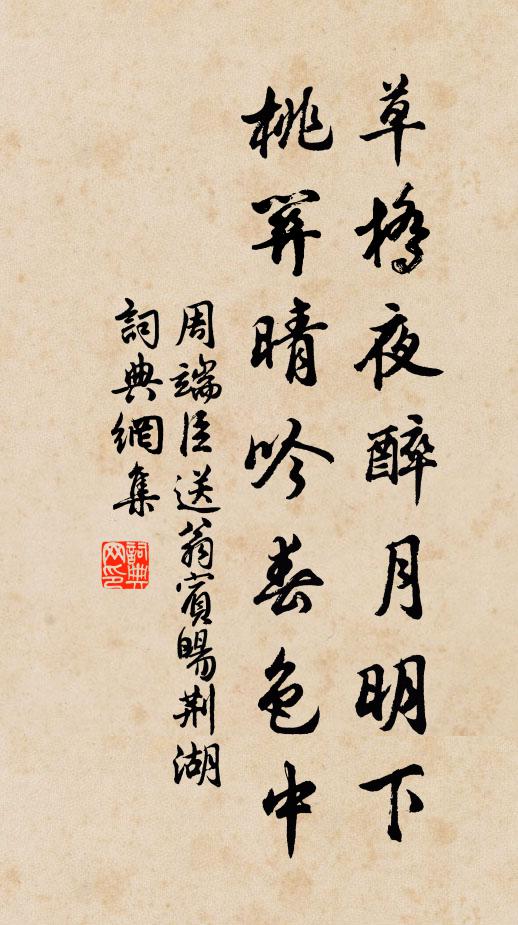 草橋夜醉月明下
桃晴吟春色中
周端臣送翁賓暘荊湖
詞典網集
詞典
网印